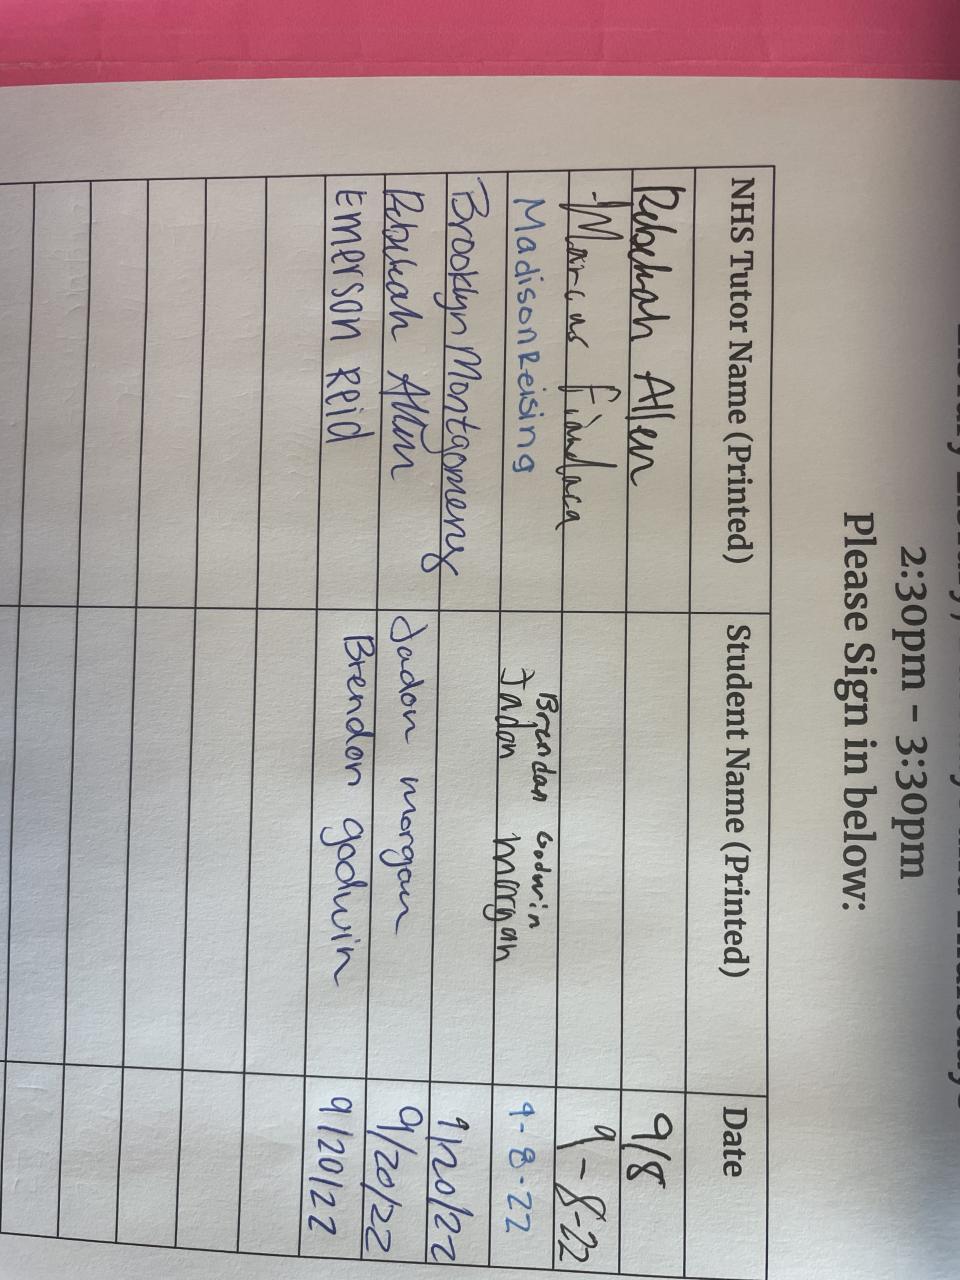 2:30pm - 3:30pm
Please Sign in below:
NHS Tutor Name (Printed) Student Name (Printed) Date
Rebekah Allen 9/8
Marcus 9-8-22
Madison Reising Brendan Godwin 9-8-22
Jadon morgan
Brooklyn Montgomery 9/20/22
Rebekah Allen Jadon morgan 9/20/22
Emerson Reid Brendon godwin 9/20/22